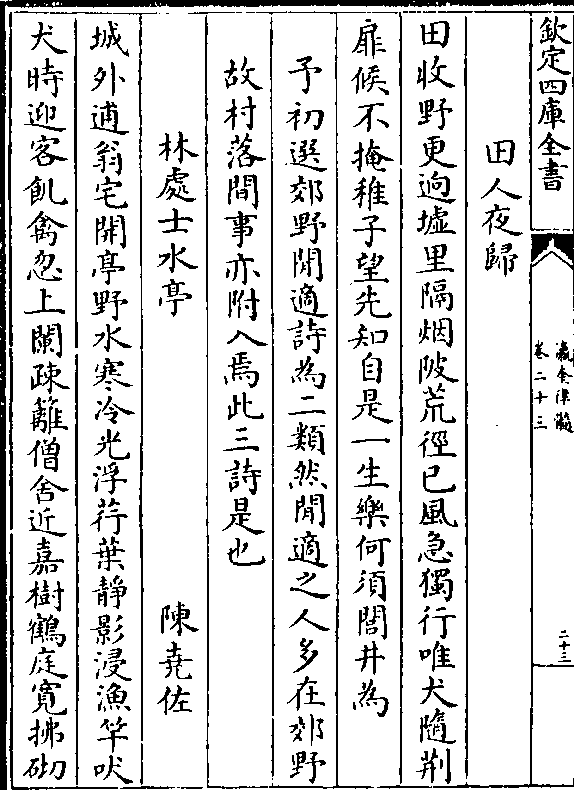 欽定四庫全書
瀛奎律髓
卷二十三
二十三
田人夜歸
田收野更逈墟里隔烟陂荒徑已風急獨行唯犬隨荆
扉候不掩稚子望先知自是一生樂何須閭井為
予初選郊野閒適詩為二類然閒適之人多在郊野
故村落間事亦附入焉此三詩是也
林處士水亭　陳堯佐
城外逋翁宅開亭野水寒冷光浮荇葉靜影浸漁竿吠
犬時迎客飢禽忽上闌疎籬僧舍近嘉樹鶴庭寛拂砌